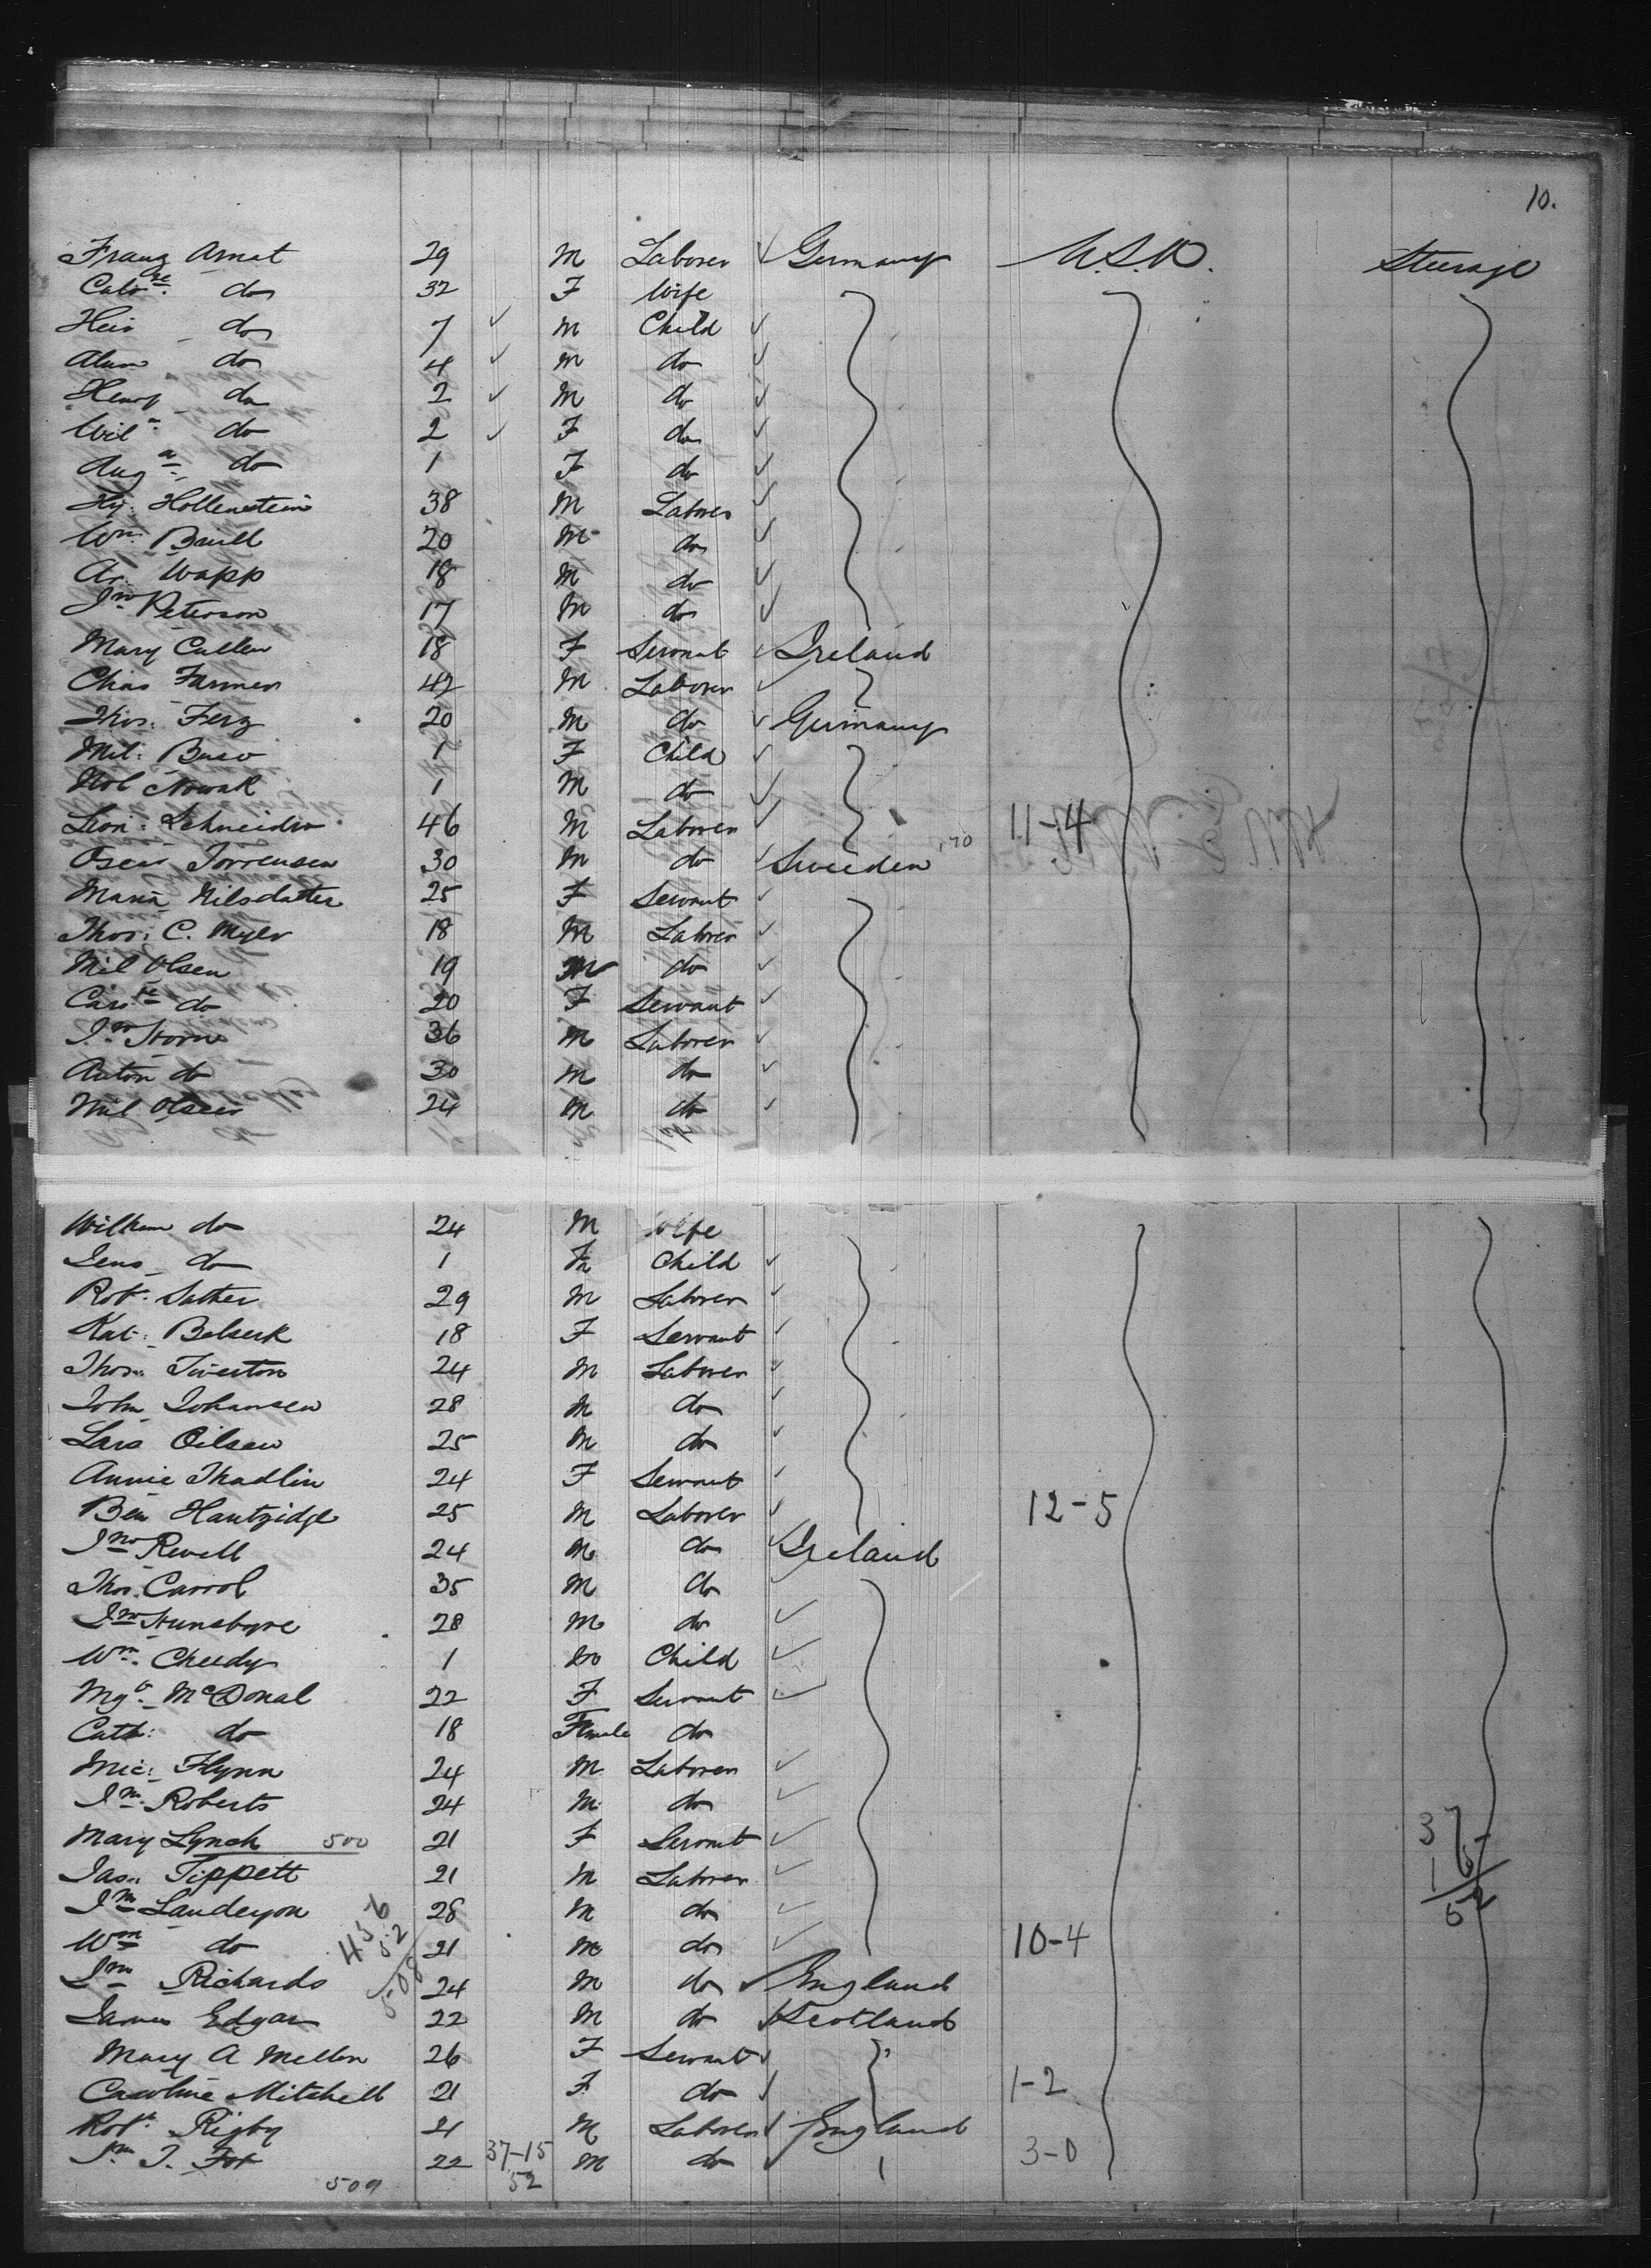 10.
Franz Arnat 29 M Laborer Germany U.S.A. Steerage
do 32 F Wife
do 7 M Child
do 4 M do
Henry do 2 M do
Wil a do 2 F do
Aug a do 1 F do
Hy. Hollenstein 38 M Laborer
Wm. 20 M do
Wapp 18 M do
Jno Peterson 17 M do
Mary Cullen 18 F Servant Ireland
Chas Farmer 42 M Laborer
Thos. Ferz 20 M do Germany
Mil: 1 F Child
Nowak 1 M do
Leon: Schneider 46 M Laborer 11-4
Oscar Torrensen 30 M do Sweeden
Maria Nilsdatter 25 F Servant
Thos. C. Myler 18 M Laborer
Mil Olsen 19 M do
do 20 F Servant
Jno 36 M Laborer
Anton do 30 M do
Nil Olsen 24 M do
do 24 M Wife
Jens do 1 Child
Robt. Sather 29 M Laborer
Kat: Belserk 18 F Servant
Thos. Tiverton 24 M Laborer
John Johansen 28 M do
Lars Oilsen 25 M do
Annie Thadlin 24 F Servant
Ben Hantzidge 25 M Laborer 12-5
Jno Revell 24 M do Ireland
Thos. Carrol 35 M do
Jno 28 M do
Wm. Cheedy 1 M Child
Mgt. McDonal 22 F Servant
Cath: do 18 Female do
Mic: Flynn 24 M Laborer
Jno. Roberts 24 M do
Mary Lynch 500 21 F Servant
Jas. Tippett 21 M Laborer
Jno Landeryon 28 M do
Wm do 21 M do 10-4
456
52
508
37
15
52
Jno Richards 24 M do England
James Edgar 22 M do Scotland
Mary A Mellon 26 F Servant
Caroline Mitchell 21 F do 1-2
Robt. Rigby 21 M Laborer England
Jno J. Fox 22 37-15 M do 3-0
509 52